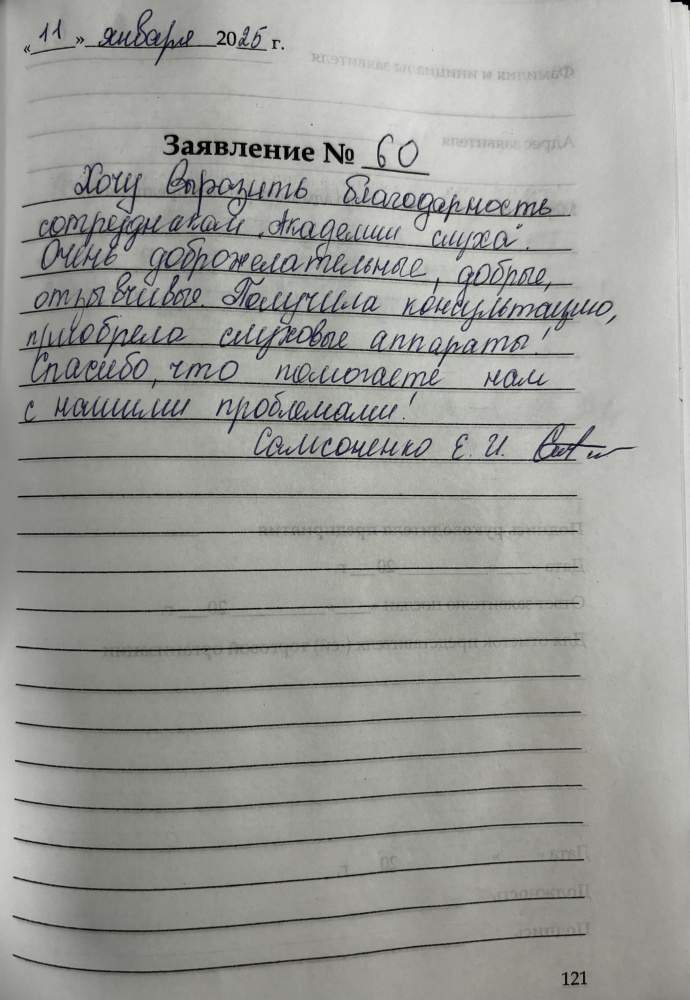 «11» января 2025 г.
Заявление № 60
Хочу выразить благодарность
сотрудникам „Академии слуха".
Очень доброжелательные, добрые,
отзывчивые. Получила консультацию,
приобрела слуховые аппараты!
Спасибо, что помогаете нам
с нашими проблемами!
Самсоненко Е. И.
121